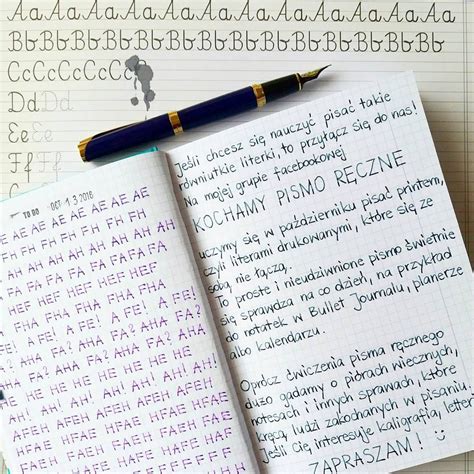 Aa Aa Aa Aa Aa Aa Aa Aa Aa
Bb Bb Bb Bb Bb Bb Bb Bb Bb
Cc Cc Cc Cc Cc
Dd Dd
Ee Ee
Ff Ff
TO DO OCT 1 3 2016
AE AE AE AE AE AE
FH FH FH FH FH FH
FA FA FA FA FA FA
HEF HEF HEF HEF
FHA FHA FHA FHA
A FE! A FE! A FE!
AHA FA? AHA FA?
HE HE HE HE HE HE
AH! AH! AH! AH!
AFEH AFEH AFEH AFEH
HFAE HFAE HFAE HFAE
Jeśli chcesz się nauczyć pisać takie
równiutkie literki, to przyłącz się do nas!
Na mojej grupie facebookowej
KOCHAMY PISMO RĘCZNE
uczymy się w październiku pisać printem,
czyli literami drukowanymi, które się ze
sobą nie łączą.
To proste i nieudziwnione pismo świetnie
się sprawdza na co dzień, na przykład
do notatek w Bullet Journalu, planerze
albo kalendarzu.
Oprócz ćwiczenia pisma ręcznego
dużo gadamy o piórach wiecznych,
notesach i innych sprawach, które
kręcą ludzi zakochanych w pisaniu.
Jeśli Cię interesuje kaligrafia, letter
ZAPRASZAM! :)